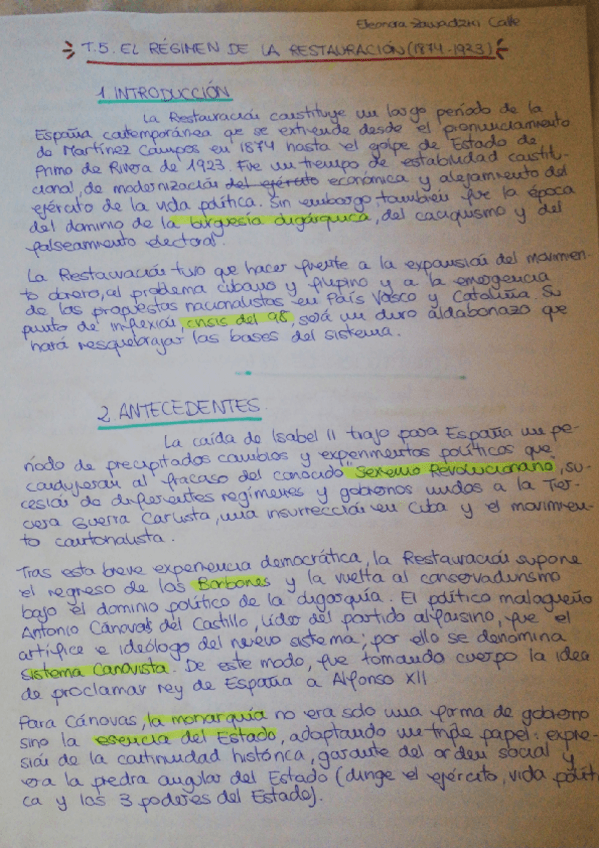 Eleonora Zawadzki Calle
T.5. EL RÉGIMEN DE LA RESTAURACIÓN (1874-1923)
1. INTRODUCCIÓN
La Restauración constituye un largo período de la
España contemporánea que se extiende desde el pronunciamiento
de Martínez Campos en 1874 hasta el golpe de Estado de
Primo de Rivera de 1923. Fue un tiempo de estabilidad constitu-
cional, de modernización del ejército económica y alejamiento del
ejército de la vida política. Sin embargo también fue la época
del dominio de la burguesía oligárquica, del caciquismo y del
falseamiento electoral.
La Restauración tuvo que hacer frente a la expansión del movimien-
to obrero, al problema cubano y filipino y a la emergencia
de las propuestas nacionalistas en País Vasco y Cataluña. Su
punto de inflexión, crisis del 98, será un duro aldabonazo que
hará resquebrajar las bases del sistema.
2. ANTECEDENTES.
La caída de Isabel II trajo para España un pe-
riodo de precipitados cambios y experimentos políticos que
condujeron al fracaso del conocido "Sexenio Revolucionario", su-
cesión de diferentes regímenes y gobiernos unidos a la Ter-
cera Guerra Carlista, una insurrección en Cuba y el movimien-
to cantonalista.
Tras esta breve experiencia democrática, la Restauración supone
el regreso de los Borbones y la vuelta al conservadurismo
bajo el dominio político de la oligarquía. El político malagueño
Antonio Cánovas del Castillo, líder del partido alfonsino, fue el
artífice e ideólogo del nuevo sistema; por ello se denomina
sistema Canovista. De este modo, fue tomando cuerpo la idea
de proclamar rey de España a Alfonso XII
Para Cánovas, la monarquía no era solo una forma de gobierno
sino la esencia del Estado, adaptando un triple papel: expre-
sión de la continuidad histórica, garante del orden social y
era la piedra angular del Estado (dirige el ejército, vida políti-
ca y los 3 poderes del Estado).